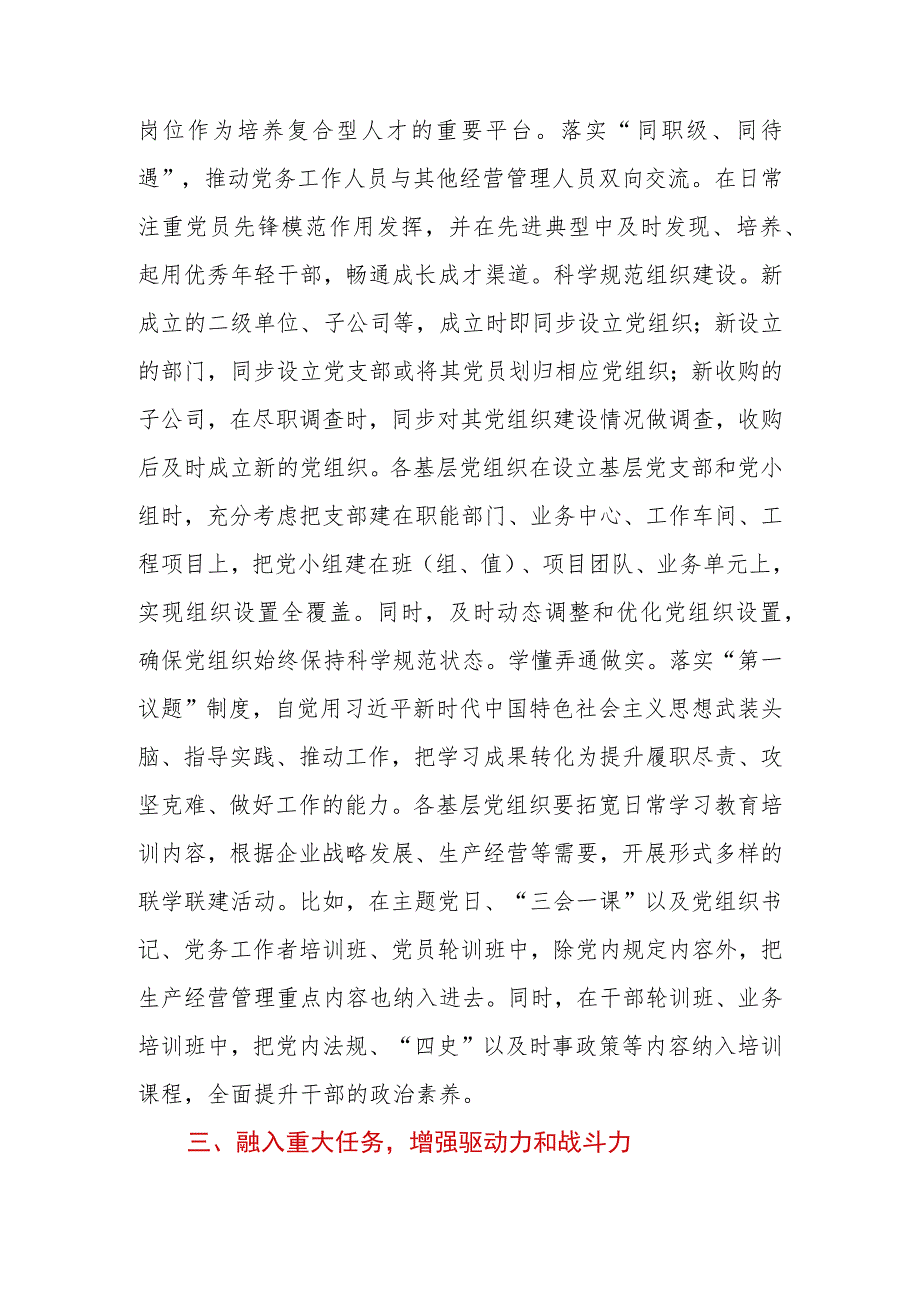 岗位作为培养复合型人才的重要平台。落实“同职级、同待
遇”，推动党务工作人员与其他经营管理人员双向交流。在日常
注重党员先锋模范作用发挥，并在先进典型中及时发现、培养、
起用优秀年轻干部，畅通成长成才渠道。科学规范组织建设。新
成立的二级单位、子公司等，成立时即同步设立党组织；新设立
的部门，同步设立党支部或将其党员划归相应党组织；新收购的
子公司，在尽职调查时，同步对其党组织建设情况做调查，收购
后及时成立新的党组织。各基层党组织在设立基层党支部和党小
组时，充分考虑把支部建在职能部门、业务中心、工作车间、工
程项目上，把党小组建在班（组、值）、项目团队、业务单元上，
实现组织设置全覆盖。同时，及时动态调整和优化党组织设置，
确保党组织始终保持科学规范状态。学懂弄通做实。落实“第一
议题”制度，自觉用习近平新时代中国特色社会主义思想武装头
脑、指导实践、推动工作，把学习成果转化为提升履职尽责、攻
坚克难、做好工作的能力。各基层党组织要拓宽日常学习教育培
训内容，根据企业战略发展、生产经营等需要，开展形式多样的
联学联建活动。比如，在主题党日、“三会一课”以及党组织书
记、党务工作者培训班、党员轮训班中，除党内规定内容外，把
生产经营管理重点内容也纳入进去。同时，在干部轮训班、业务
培训班中，把党内法规、“四史”以及时事政策等内容纳入培训
课程，全面提升干部的政治素养。
三、融入重大任务，增强驱动力和战斗力